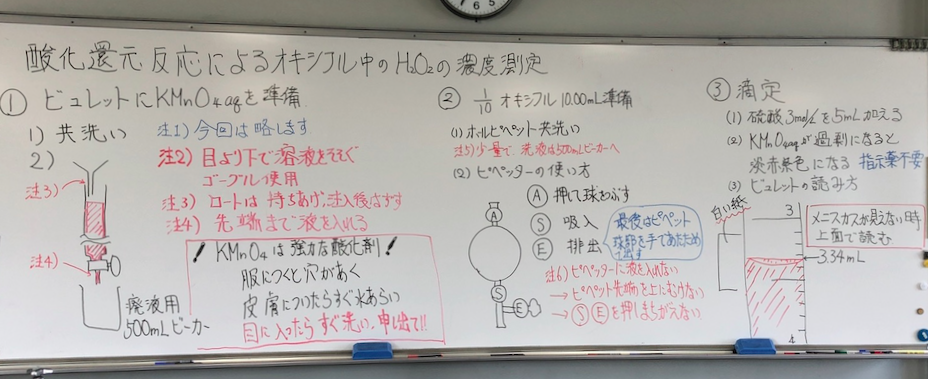 酸化還元反応によるオキシフル中のH₂O₂の濃度測定
① ビュレットにKMnO₄aqを準備
1) 共洗い 注1) 今回は略します
2) 注2) 目より下で溶液をそそぐ
ゴーグル使用
注3) 注3) ロートは持ちあげ、注入後はずす
注4) 先端まで液を入れる
注4)
廃液用
500mLビーカー
! KMnO₄は強力な酸化剤 !
服につくと穴があく
皮膚についたらすぐ水あらい
目に入ったらすぐ洗い、申し出て!!
② 1/10 オキシフル 10.00mL準備
(1) ホールピペット共洗い
注5) 少量で、洗液は500mLビーカーへ
(2) ピペッターの使い方
Ⓐ 押して球をつぶす
Ⓢ 吸入
Ⓔ 排出
最後はピペット
球部を手であたため
て出す
注6) ピペッターに液を入れない
→ピペット先端を上にむけない
→ⓈⒺを押しまちがえない
Ⓐ
Ⓢ
Ⓔ
③ 滴定
(1) 硫酸3mol/Lを5mL加える
(2) KMnO₄aqが過剰になると
淡赤紫色になる 指示薬不要
(3) ビュレットの読み方
白い紙
3
メニスカスが見えない時
上面で読む
3.34mL
4